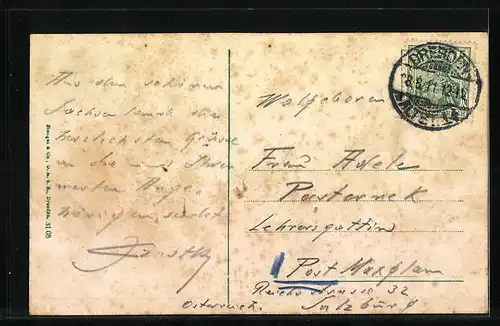 Aus dem schönen
Sachsenlande die
herzlichsten Grüsse
an die und Ihren
werten Angehörigen sendet
Stengel & Co., G. m. b. H., Dresden. 31 08
DRESDEN
ALTST.
Frau Adele
Posterneck
Lehrersgattin
Post Maxglan
Reichsstrasse 32
Salzburg
Österreich.